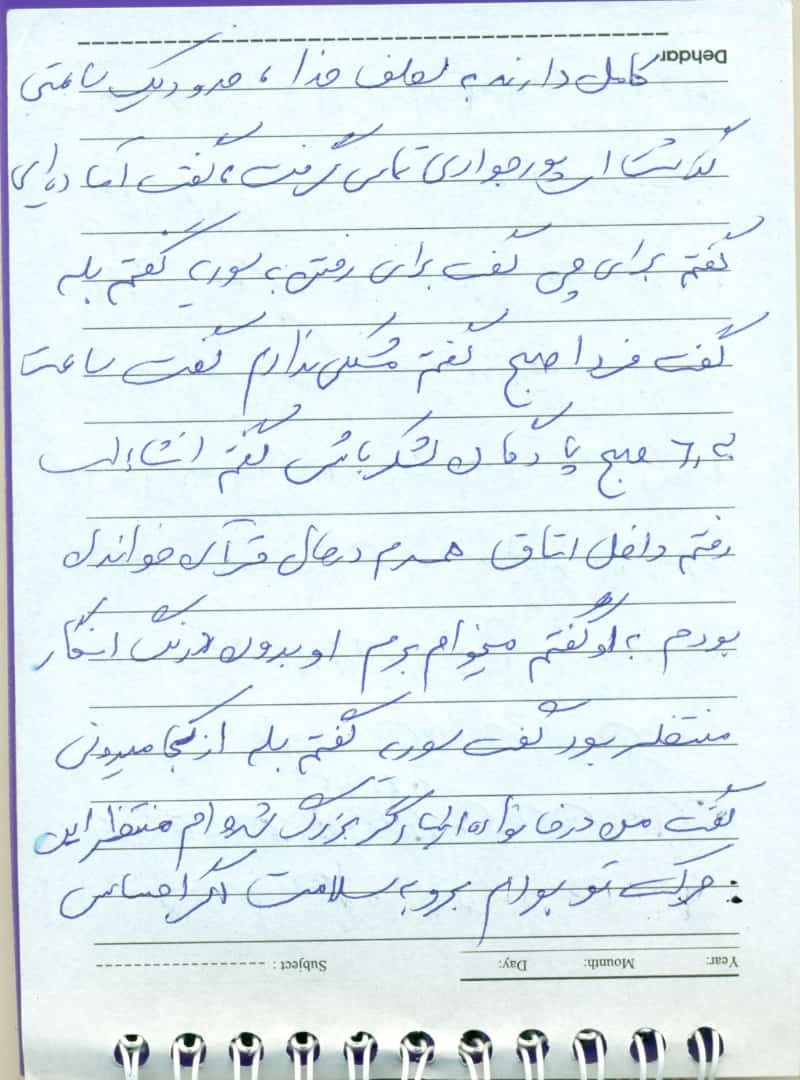 Dehdar
کامل دارند به لطف خدا ، حدود یک ساعتی
گذشت از پورجواری تماس گرفت ، گفت آماده‌ای
گفتم برای چی گفت برای رفتن به سوریه گفتم بله
گفت فردا صبح گفتم مشکلی ندارم گفت ساعت
صبح پادگان لشکر باش گفتم انشاءالله
رفتم داخل اتاق همسرم در حال قرآن خواندن
بودم به او گفتم میخوام برم او بدون درنگ انگار
منتظر بود گفت سوریه گفتم بله از کجا میدونی
گفت من در خانواده ایثارگر بزرگ شده ام منتظر این
حرکت تو بودم برو به سلامت اگر احساس
Year: Mounth: Day: Subject :